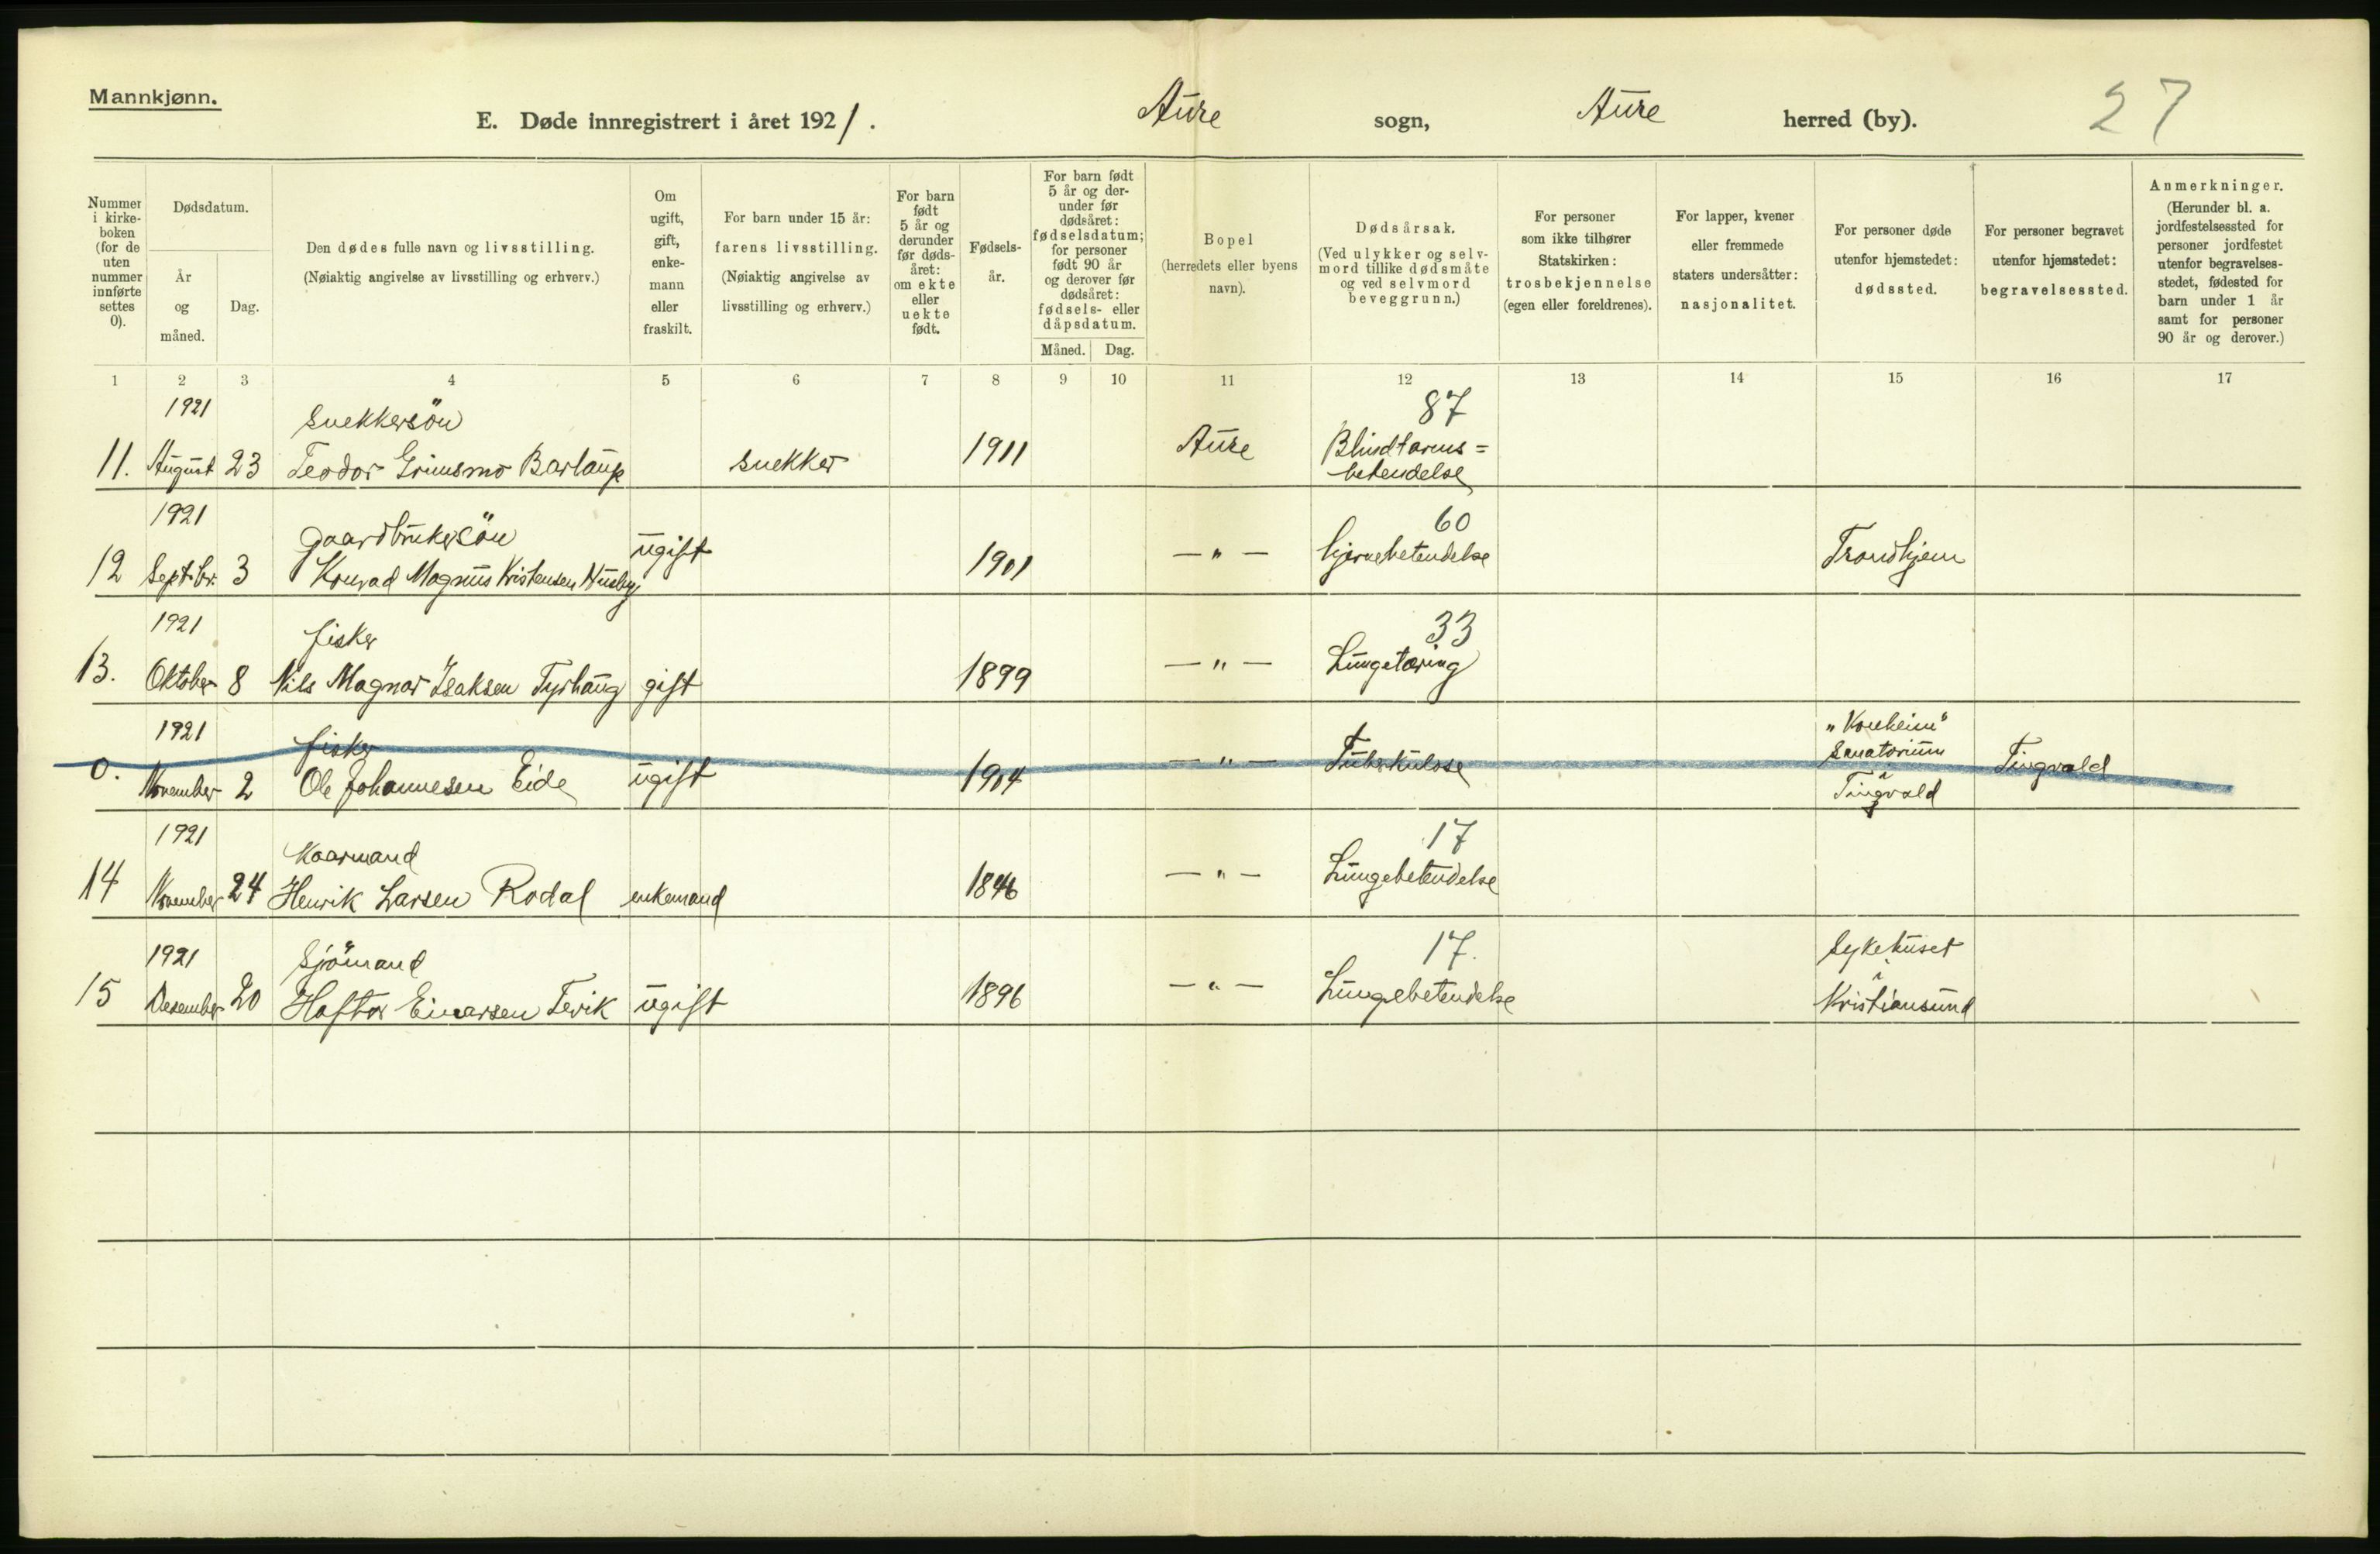 Mannkjønn.
E. Døde innregistrert i året 1921. Aure sogn, Aure herred (by). 27
Nummer i kirke-boken (for de uten nummer innførte settes 0).
Dødsdatum.
År og måned.
Dag.
Den dødes fulle navn og livsstilling.
(Nøiaktig angivelse av livsstilling og erhverv.)
Om ugift, gift, enke-mann eller fraskilt.
For barn under 15 år: farens livsstilling.
(Nøiaktig angivelse av livsstilling og erhverv.)
For barn født 5 år og derunder før døds-året: om ekte eller uekte født.
Fødsels-år.
For barn født 5 år og der-under før dødsåret: fødselsdatum; for personer født 90 år og derover før dødsåret: fødsels- eller dåpsdatum.
Måned. Dag.
Bopel (herredets eller byens navn).
Dødsårsak.
(Ved ulykker og selv-mord tillike dødsmåte og ved selvmord beveggrunn.)
For personer som ikke tilhører Statskirken: trosbekjennelse (egen eller foreldrenes).
For lapper, kvener eller fremmede staters undersåtter: nasjonalitet.
For personer døde utenfor hjemstedet: dødssted.
For personer begravet utenfor hjemstedet: begravelsessted.
Anmerkninger.
(Herunder bl. a. jordfestelsessted for personer jordfestet utenfor begravelses-stedet, fødested for barn under 1 år samt for personer 90 år og derover.)
1 2 3 4 5 6 7 8 9 10 11 12 13 14 15 16 17
1921 Snekkersön 87
11. August 23 Teodor Grimsmo Barlaup snekker 1911 Aure Blindtarms=
betendelse
1921 gaardbrukersön 60
12 Septbr. 3 Konrad Magnus Kristensen Husby ugift 1901 — " — hjernebetendelse Trondhjem
1921 fisker 33
13. Oktober 8 Nils Magnar Isaksen Tyrhaug gift 1899 — " — Lungetæring
1921 fisker "Konheim"
Sanatorium
0. November 2 Ole Johannesen Eide ugift 1904 — " — Tuberkulose Tingvold Tingvold
1921 Kaarmand 17
14 November 24 Henrik Larsen Rodal enkemand 1846 — " — Lungebetendelse
1921 Sjömand 17. Sykehuset
i
15 Desember 20 Haftor Einarsen Tevik ugift 1896 — " — Lungebetendelse Kristiansund